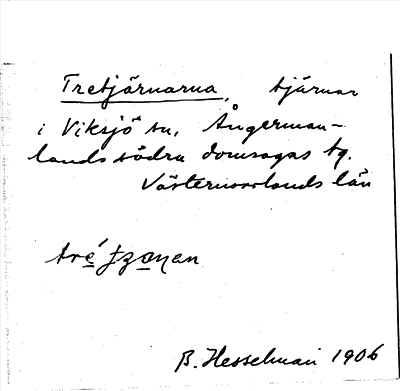 Tretjärnarna, tjärnar
i Viksjö sn, Ångerman-
lands södra domsagas tg.
Västernorrlands län
tre´ȷ̵zɔṇan
B. Hesselman 1906